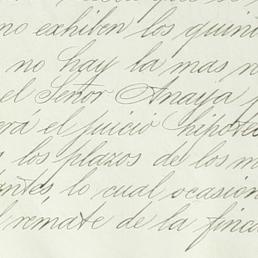 no exhiben los quin
no hay la mas
el Señor Anaya
erá el juicio hipote
los plazos de los
antes, lo cual ocasion
remate de la finca